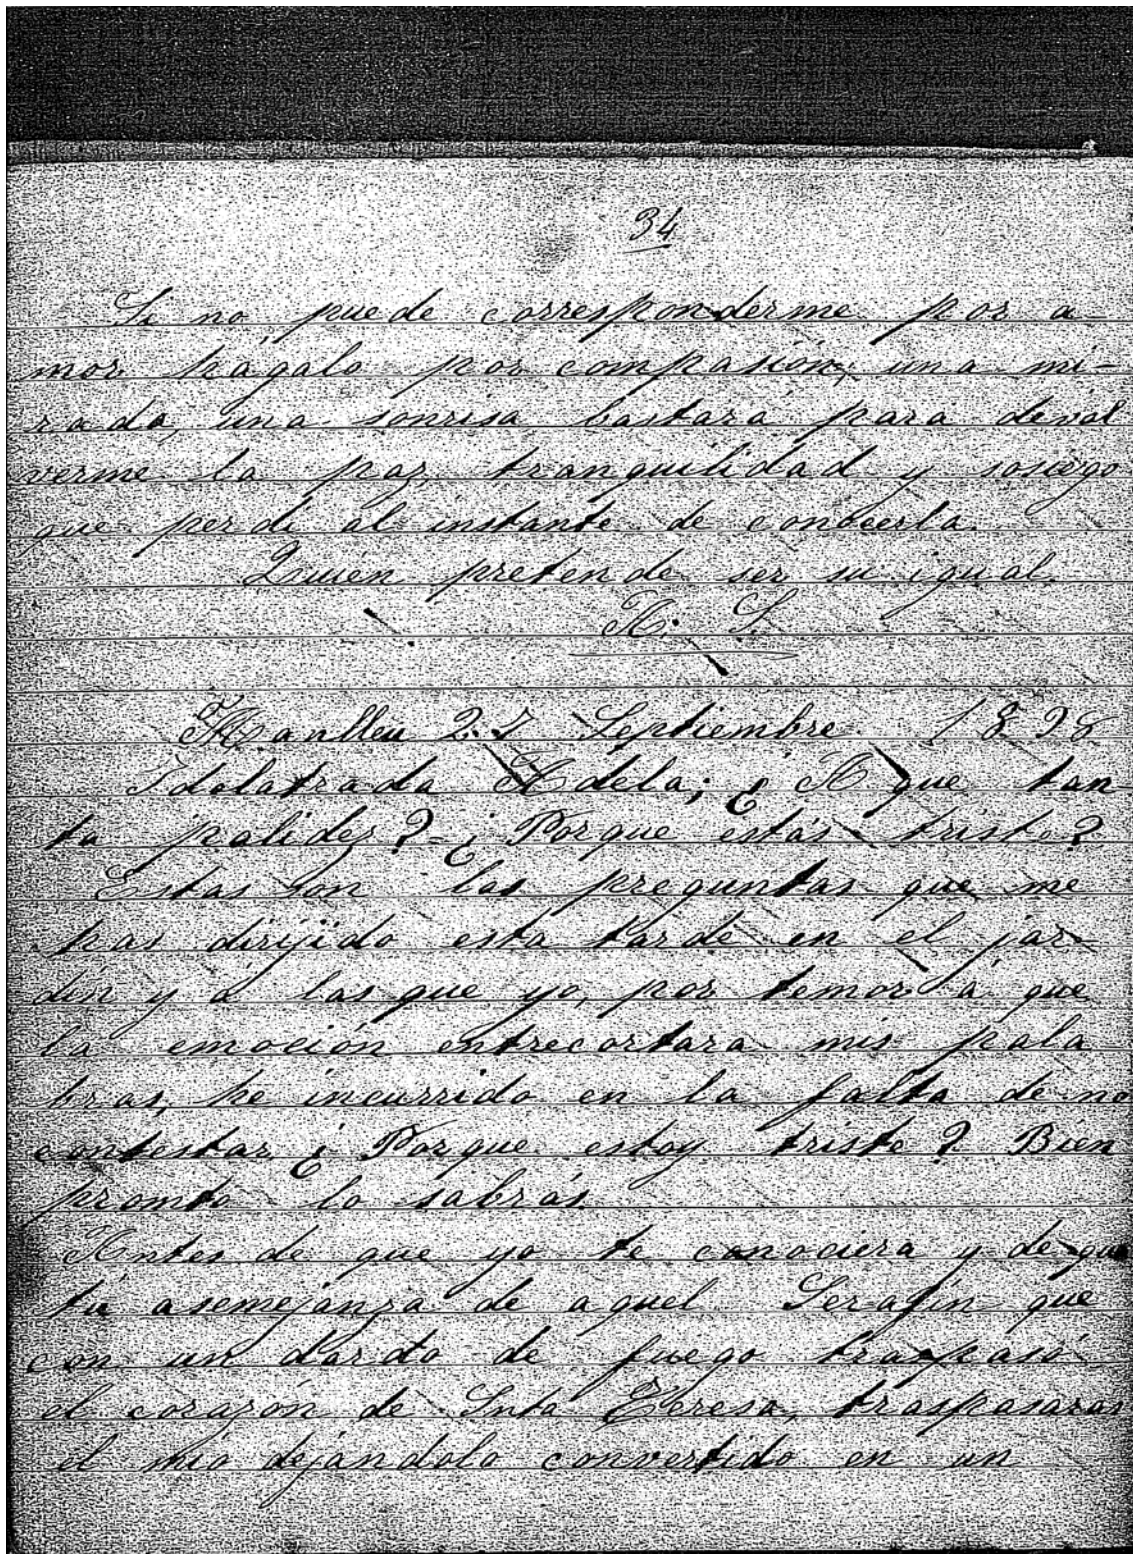 34
Si no puede corresponderme por a
mor hágalo por compasión, una mi-
rada, una sonrisa bastará para devol
verme la paz, tranquilidad y sosiego
que perdí al instante de conocerla.
Quien pretende ser su igual.
A. S.
Manlleu 27 Septiembre 1898
Idolatrada Adela; ¿A que tan
ta palidez?-¿Porque estás triste?
Estas son las preguntas que me
has dirijido esta tarde en el jar-
din y á las que yo, por temor á que
la emoción entrecortara mis pala
bras, he incurrido en la falta de no
contestar ¿Porque estoy triste? Bien
promto lo sabrás.
Antes de que yo te conociera y de que
tú asemejanza de aquel Serafín que
con un dardo de fuego traspasó
el corazón de Snta Teresa, traspasaras
el mio dejándolo convertido en un